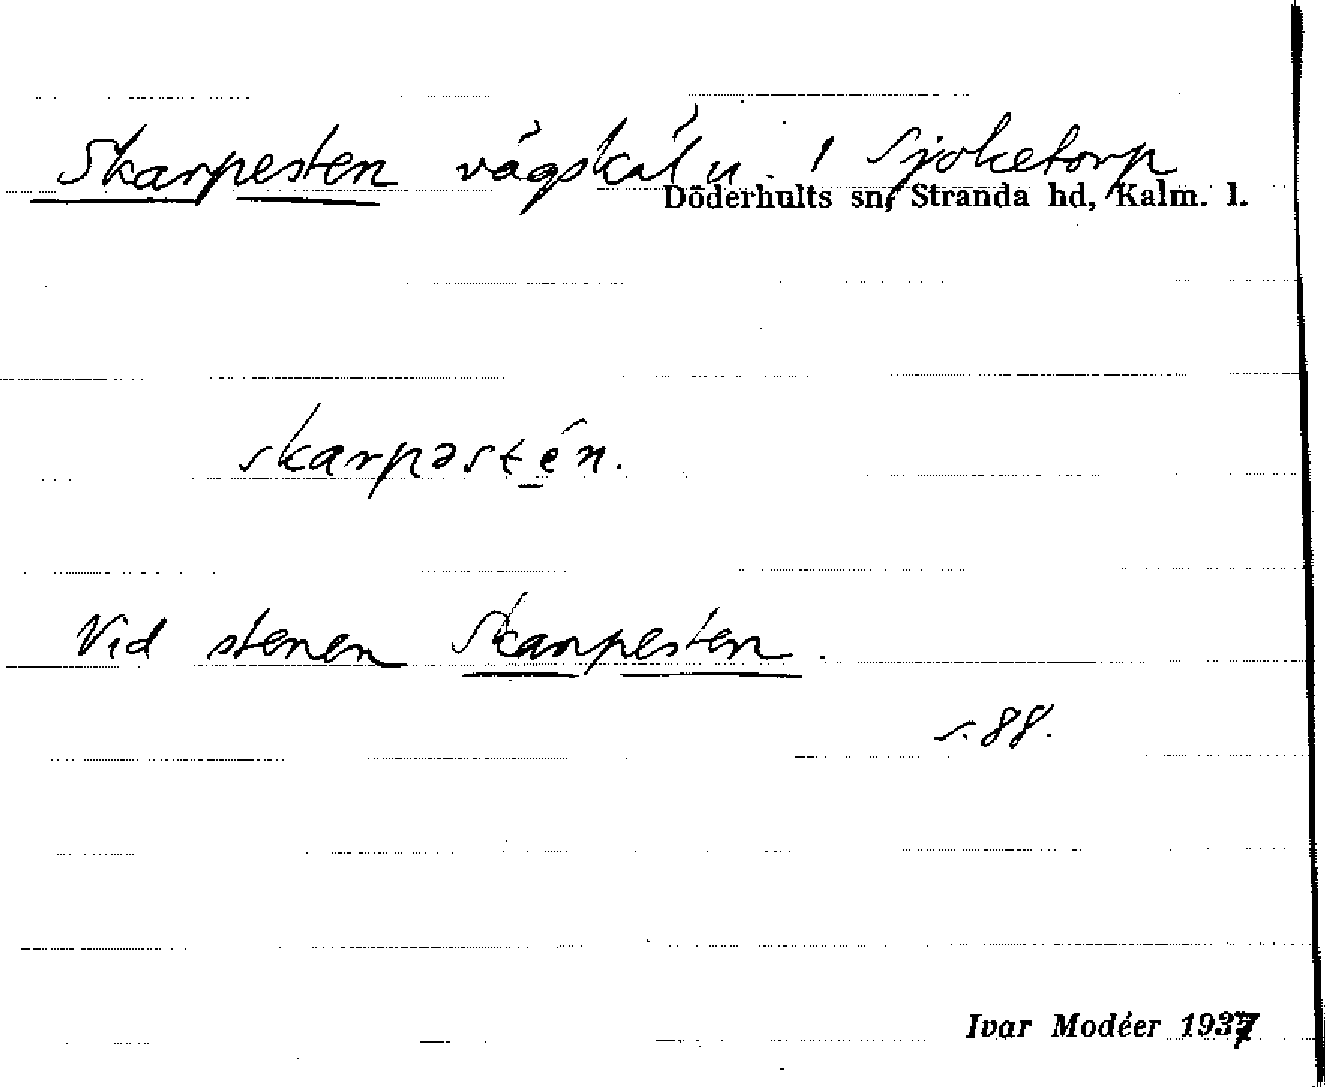 Skarpesten vägskäl u. / Sjöketorp
Döderhults sn, Stranda hd, Kalm. l.
skarpəstén.
Vid stenen Skarpesten.
s. 88.
Ivar Modéer 1937